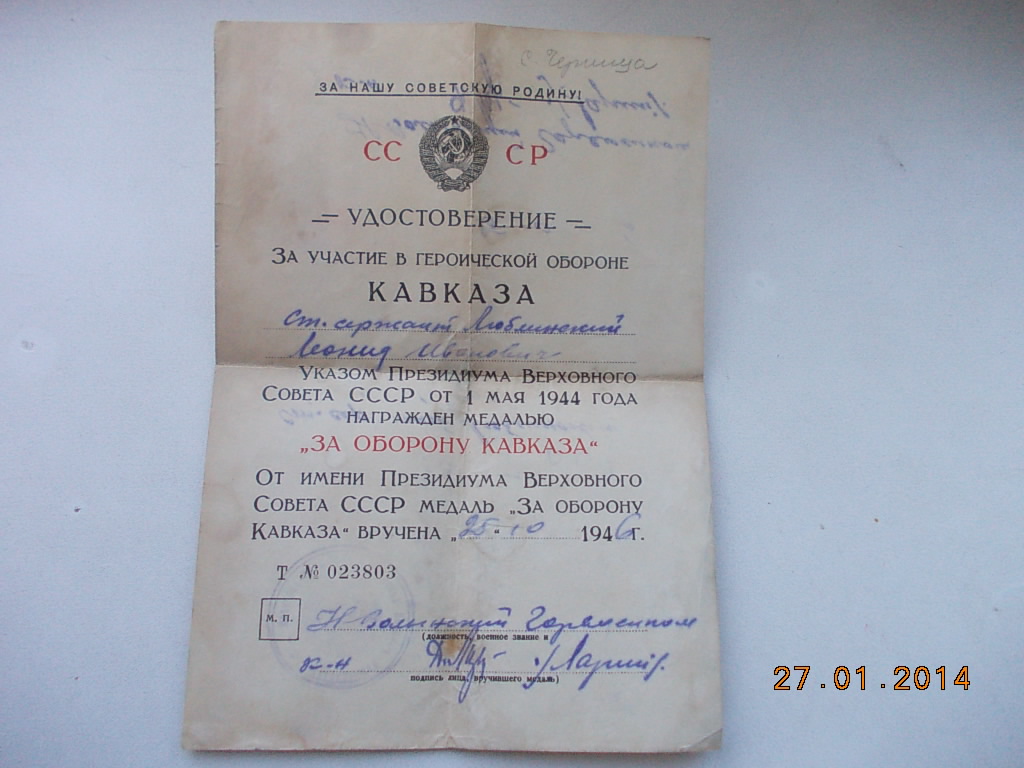 с. Черница
ЗА НАШУ СОВЕТСКУЮ РОДИНУ!
СС СР
УДОСТОВЕРЕНИЕ
ЗА УЧАСТИЕ В ГЕРОИЧЕСКОЙ ОБОРОНЕ
КАВКАЗА
Ст. сержант Люблинский
Леонид Иванович
УКАЗОМ ПРЕЗИДИУМА ВЕРХОВНОГО
СОВЕТА СССР ОТ 1 МАЯ 1944 ГОДА
НАГРАЖДЕН МЕДАЛЬЮ
„ЗА ОБОРОНУ КАВКАЗА“
ОТ ИМЕНИ ПРЕЗИДИУМА ВЕРХОВНОГО
СОВЕТА СССР МЕДАЛЬ „ЗА ОБОРОНУ
КАВКАЗА“ ВРУЧЕНА „25“ 10 1946 г.
Т № 023803
М. П.
(должность, военное звание и
к-н
подпись лица, вручившего медаль)
27.01.2014